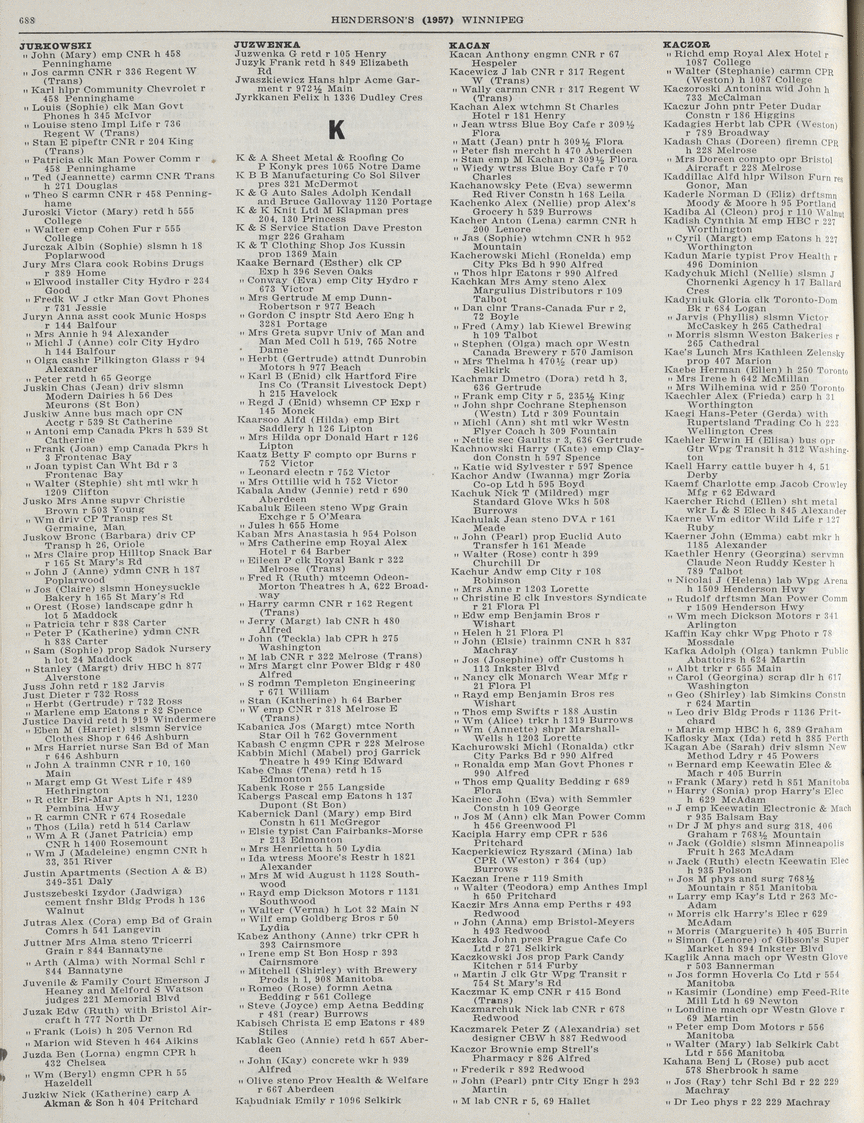 688
HENDERSON'S (1957) WINNIPEG
JURKOWSKI
" John (Mary) emp CNR h 458
Penninghame
" Jos carmn CNR r 336 Regent W
(Trans)
" Karl hlpr Community Chevrolet r
458 Penninghame
" Louis (Sophie) clk Man Govt
Phones h 345 McIvor
" Louise steno Impl Life r 736
Regent W (Trans)
" Stan E pipeftr CNR r 204 King
(Trans)
" Patricia clk Man Power Comm r
458 Penninghame
" Ted (Jeannette) carmn CNR Trans
h 271 Douglas
" Theo S carmn CNR r 458 Penning-
hame
Juroski Victor (Mary) retd h 555
College
" Walter emp Cohen Fur r 555
College
Jurczak Albin (Sophie) slsmn h 18
Poplarwood
Jury Mrs Clara cook Robins Drugs
r 389 Home
" Elwood installer City Hydro r 234
Good
" Fredk W J ctkr Man Govt Phones
r 731 Jessie
Juryn Anna asst cook Munic Hosps
r 144 Balfour
" Mrs Annie h 94 Alexander
" Michl J (Anne) colr City Hydro
h 144 Balfour
" Olga cashr Pilkington Glass r 94
Alexander
" Peter retd h 65 George
Juskin Chas (Jean) driv slsmn
Modern Dairies h 56 Des
Meurons (St Bon)
Juskiw Anne bus mach opr CN
Acctg r 539 St Catherine
" Antoni emp Canada Pkrs h 539 St
Catherine
" Frank (Joan) emp Canada Pkrs h
3 Frontenac Bay
" Joan typist Can Wht Bd r 3
Frontenac Bay
" Walter (Stephie) sht mtl wkr h
1209 Clifton
Jusko Mrs Anne supvr Christie
Brown r 503 Young
" Wm driv CP Transp res St
Germaine, Man
Juskow Bronc (Barbara) driv CP
Transp h 26, Oriole
" Mrs Claire prop Hilltop Snack Bar
r 165 St Mary's Rd
" John J (Anne) ydmn CNR h 187
Poplarwood
" Jos (Claire) slsmn Honeysuckle
Bakery h 165 St Mary's Rd
" Orest (Rose) landscape gdnr h
lot 5 Maddock
" Patricia tchr r 838 Carter
" Peter P (Katherine) ydmn CNR
h 838 Carter
" Sam (Sophie) prop Sadok Nursery
h lot 24 Maddock
" Stanley (Margt) driv HBC h 877
Alverstone
Juss John retd r 182 Jarvis
Just Dieter r 732 Ross
" Herbt (Gertrude) r 732 Ross
" Marlene emp Eatons r 82 Spence
Justice David retd h 919 Windermere
" Eben M (Harriet) slsmn Service
Clothes Shop r 646 Ashburn
" Mrs Harriet nurse San Bd of Man
r 646 Ashburn
" John A trainmn CNR r 10, 160
Main
" Margt emp Gt West Life r 489
Hethrington
" R ctkr Bri-Mar Apts h N1, 1230
Pembina Hwy
" R carmn CNR r 674 Rosedale
" Thos (Lila) retd h 514 Carlaw
" Wm A R (Janet Patricia) emp
CNR h 1400 Rosemount
" Wm J (Madeleine) engmn CNR h
33, 351 River
Justin Apartments (Section A & B)
349-351 Daly
Justszebski Izydor (Jadwiga)
cement fnshr Bldg Prods h 136
Walnut
Jutras Alex (Cora) emp Bd of Grain
Comrs h 541 Langevin
Juttner Mrs Alma steno Tricerri
Grain r 844 Bannatyne
" Arth (Alma) with Normal Schl r
844 Bannatyne
Juvenile & Family Court Emerson J
Heaney and Melford S Watson
judges 221 Memorial Blvd
Juzak Edw (Ruth) with Bristol Air-
craft h 777 North Dr
" Frank (Lois) h 205 Vernon Rd
" Marion wid Steven h 464 Aikins
Juzda Ben (Lorna) engmn CPR h
432 Chelsea
" Wm (Beryl) engmn CPR h 55
Hazeldell
Juzkiw Nick (Katherine) carp A
Akman & Son h 404 Pritchard
JUZWENKA
Juzwenka G retd r 105 Henry
Juzyk Frank retd h 849 Elizabeth
Rd
Jwaszkiewicz Hans hlpr Acme Gar-
ment r 972½ Main
Jyrkkanen Felix h 1336 Dudley Cres
K
K & A Sheet Metal & Roofing Co
P Konyk pres 1065 Notre Dame
K B B Manufacturing Co Sol Silver
pres 321 McDermot
K & G Auto Sales Adolph Kendall
and Bruce Galloway 1120 Portage
K & K Knit Ltd M Klapman pres
204, 130 Princess
K & S Service Station Dave Preston
mgr 226 Graham
K & T Clothing Shop Jos Kussin
prop 1369 Main
Kaake Bernard (Esther) clk CP
Exp h 396 Seven Oaks
" Conway (Eva) emp City Hydro r
673 Victor
" Mrs Gertrude M emp Dunn-
Robertson r 977 Beach
" Gordon C insptr Std Aero Eng h
3281 Portage
" Mrs Greta supvr Univ of Man and
Man Med Coll h 519, 765 Notre
Dame
" Herbt (Gertrude) attndt Dunrobin
Motors h 977 Beach
" Karl B (Enid) clk Hartford Fire
Ins Co (Transit Livestock Dept)
h 215 Havelock
" Regd J (Enid) whsemn CP Exp r
145 Monck
Kaarsoo Alfd (Hilda) emp Birt
Saddlery h 126 Lipton
" Mrs Hilda opr Donald Hart r 126
Lipton
Kaatz Betty F compto opr Burns r
752 Victor
" Leonard electn r 752 Victor
" Mrs Ottillie wid h 752 Victor
Kabala Andw (Jennie) retd r 690
Aberdeen
Kabaluk Eileen steno Wpg Grain
Exchge r 5 O'Meara
" Jules h 655 Home
Kaban Mrs Anastasia h 954 Polson
" Mrs Catherine emp Royal Alex
Hotel r 64 Barber
" Eileen P clk Royal Bank r 322
Melrose (Trans)
" Fred R (Ruth) mtcemn Odeon-
Morton Theatres h A, 622 Broad-
way
" Harry carmn CNR r 162 Regent
(Trans)
" Jerry (Margt) lab CNR h 480
Alfred
" John (Teckla) lab CPR h 275
Washington
" M lab CNR r 322 Melrose (Trans)
" Mrs Margt clnr Power Bldg r 480
Alfred
" S rodmn Templeton Engineering
r 671 William
" Stan (Katherine) h 64 Barber
" W emp CNR r 318 Melrose E
(Trans)
Kabanica Jos (Margt) mtce North
Star Oil h 762 Government
Kabash C engmn CPR r 228 Melrose
Kabbin Michl (Mabel) proj Garrick
Theatre h 499 King Edward
Kabe Chas (Tena) retd h 15
Edmonton
Kabenk Rose r 255 Langside
Kabergs Pascal emp Eatons h 137
Dupont (St Bon)
Kabernick Danl (Mary) emp Bird
Constn h 611 McGregor
" Elsie typist Can Fairbanks-Morse
r 213 Edmonton
" Mrs Henrietta h 50 Lydia
" Ida wtress Moore's Restr h 1821
Alexander
" Mrs M wid August h 1128 South-
wood
" Rayd emp Dickson Motors r 1131
Southwood
" Walter (Verna) h Lot 32 Main N
" Wilf emp Goldberg Bros r 50
Lydia
Kabez Anthony (Anne) trkr CPR h
393 Cairnsmore
" Irene emp St Bon Hosp r 393
Cairnsmore
" Mitchell (Shirley) with Brewery
Prods h 1, 908 Manitoba
" Romeo (Rose) formn Aetna
Bedding r 561 College
" Steve (Joyce) emp Aetna Bedding
r 481 (rear) Burrows
Kabisch Christa E emp Eatons r 489
Stiles
Kablak Geo (Annie) retd h 657 Aber-
deen
" John (Kay) concrete wkr h 939
Alfred
" Olive steno Prov Health & Welfare
r 667 Aberdeen
Kabudniak Emily r 1096 Selkirk
KACAN
Kacan Anthony engmn CNR r 67
Hespeler
Kacewicz J lab CNR r 317 Regent
W (Trans)
" Wally carmn CNR r 317 Regent W
(Trans)
Kachan Alex wtchmn St Charles
Hotel r 181 Henry
" Jean wtrss Blue Boy Cafe r 309½
Flora
" Matt (Jean) pntr h 309½ Flora
" Peter fish mercht h 470 Aberdeen
" Stan emp M Kachan r 309½ Flora
" Wiedy wtrss Blue Boy Cafe r 70
Charles
Kachanowsky Pete (Eva) sewermn
Red River Constn h 168 Leila
Kachenko Alex (Nellie) prop Alex's
Grocery h 539 Burrows
Kacher Anton (Lena) carmn CNR h
200 Lenore
" Jas (Sophie) wtchmn CNR h 952
Mountain
Kacherowski Michl (Ronelda) emp
City Pks Bd h 990 Alfred
" Thos hlpr Eatons r 990 Alfred
Kachkan Mrs Amy steno Alex
Margulius Distributors r 109
Talbot
" Dan clnr Trans-Canada Fur r 2,
72 Boyle
" Fred (Amy) lab Kiewel Brewing
h 109 Talbot
" Stephen (Olga) mach opr Westn
Canada Brewery r 570 Jamison
" Mrs Thelma h 470½ (rear up)
Selkirk
Kachmar Dmetro (Dora) retd h 3,
636 Gertrude
" Frank emp City r 5, 235½ King
" John shpr Cochrane Stephenson
(Westn) Ltd r 309 Fountain
" Michl (Ann) sht mtl wkr Westn
Flyer Coach h 309 Fountain
" Nettie sec Gaults r 3, 636 Gertrude
Kachnowski Harry (Kate) emp Clay-
don Constn h 597 Spence
" Katie wid Sylvester r 597 Spence
Kachor Andw (Iwanna) mgr Zoria
Co-op Ltd h 595 Boyd
Kachuk Nick T (Mildred) mgr
Standard Glove Wks h 508
Burrows
Kachulak Jean steno DVA r 161
Meade
" John (Pearl) prop Euclid Auto
Transfer h 161 Meade
" Walter (Rose) contr h 399
Churchill Dr
Kachur Andw emp City r 108
Robinson
" Mrs Anne r 1203 Lorette
" Christine E clk Investors Syndicate
r 21 Flora Pl
" Edw emp Benjamin Bros r
Wishart
" Helen h 21 Flora Pl
" John (Elsie) trainmn CNR h 837
Machray
" Jos (Josephine) offr Customs h
113 Inkster Blvd
" Nancy clk Monarch Wear Mfg r
21 Flora Pl
" Rayd emp Benjamin Bros res
Wishart
" Thos emp Swifts r 188 Austin
" Wm (Alice) trkr h 1319 Burrows
" Wm (Annette) shpr Marshall-
Wells h 1203 Lorette
Kachurowski Michl (Ronalda) ctkr
City Parks Bd r 990 Alfred
" Ronalda emp Man Govt Phones r
990 Alfred
" Thos emp Quality Bedding r 689
Flora
Kacinec John (Eva) with Semmler
Constn h 109 George
" Jos M (Ann) clk Man Power Comm
h 456 Greenwood Pl
Kacipla Harry emp CPR r 536
Pritchard
Kacperkiewicz Ryszard (Mina) lab
CPR (Weston) r 364 (up)
Burrows
Kaczan Irene r 119 Smith
" Walter (Teodora) emp Anthes Impl
h 650 Pritchard
Kaczir Mrs Anna emp Perths r 493
Redwood
" John (Anna) emp Bristol-Meyers
h 493 Redwood
Kaczka John pres Prague Cafe Co
Ltd r 271 Selkirk
Kaczkowski Jos prop Park Candy
Kitchen r 514 Furby
" Martin J clk Gtr Wpg Transit r
754 St Mary's Rd
Kaczmar K emp CNR r 415 Bond
(Trans)
Kaczmarchuk Nick lab CNR r 678
Redwood
Kaczmarek Peter Z (Alexandria) set
designer CBW h 887 Redwood
Kaczor Brownie emp Strell's
Pharmacy r 826 Alfred
" Frederik r 892 Redwood
" John (Pearl) pntr City Engr h 293
Martin
" M lab CNR r 5, 69 Hallet
KACZOR
" Richd emp Royal Alex Hotel r
1087 College
" Walter (Stephanie) carmn CPR
(Weston) h 1087 College
Kaczoroski Antonina wid John h
733 McCalman
Kaczur John pntr Peter Dudar
Constn r 186 Higgins
Kadagies Herbt lab CPR (Weston)
r 789 Broadway
Kadash Chas (Doreen) firemn CPR
h 228 Melrose
" Mrs Doreen compto opr Bristol
Aircraft r 228 Melrose
Kaddillac Alfd hlpr Wilson Furn res
Gonor, Man
Kaderle Norman D (Eliz) drftsmn
Moody & Moore h 95 Portland
Kadiba Al (Cleon) proj r 110 Walnut
Kadish Cynthia M emp HBC r 227
Worthington
" Cyril (Margt) emp Eatons h 227
Worthington
Kadun Marie typist Prov Health r
496 Dominion
Kadychuk Michl (Nellie) slsmn J
Chornenki Agency h 17 Ballard
Cres
Kadyniuk Gloria clk Toronto-Dom
Bk r 684 Logan
" Jarvis (Phyllis) slsmn Victor
McCaskey h 265 Cathedral
" Morris slsmn Weston Bakeries r
265 Cathedral
Kae's Lunch Mrs Kathleen Zelensky
prop 407 Marion
Kaebe Herman (Ellen) h 250 Toronto
" Mrs Irene h 642 McMillan
" Mrs Wilhemina wid r 250 Toronto
Kaechler Alex (Frieda) carp h 31
Worthington
Kaegi Hans-Peter (Gerda) with
Rupertsland Trading Co h 223
Wellington Cres
Kaehler Erwin H (Elisa) bus opr
Gtr Wpg Transit h 312 Washing-
ton
Kaell Harry cattle buyer h 4, 51
Derby
Kaemf Charlotte emp Jacob Crowley
Mfg r 62 Edward
Kaercher Richd (Ellen) sht metal
wkr L & S Elec h 845 Alexander
Kaerne Wm editor Wild Life r 127
Ruby
Kaerner John (Emma) cabt mkr h
1185 Alexander
Kaethler Henry (Georgina) servmn
Claude Neon Ruddy Kester h
789 Talbot
" Nicolai J (Helena) lab Wpg Arena
h 1509 Henderson Hwy
" Rudolf drftsmn Man Power Comm
r 1509 Henderson Hwy
" Wm mech Dickson Motors r 341
Arlington
Kaffin Kay chkr Wpg Photo r 78
Mossdale
Kafka Adolph (Olga) tankmn Public
Abattoirs h 624 Martin
" Albt trkr r 655 Main
" Carol (Georgina) scrap dlr h 617
Washington
" Geo (Shirley) lab Simkins Constn
r 624 Martin
" Leo driv Bldg Prods r 1136 Prit-
chard
" Maria emp HBC h 6, 389 Graham
Kaflosky Max (Ida) retd h 385 Perth
Kagan Abe (Sarah) driv slsmn New
Method Ldry r 45 Powers
" Bernard emp Keewatin Elec &
Mach r 405 Burrin
" Frank (Mary) retd h 851 Manitoba
" Harry (Sonia) prop Harry's Elec
h 629 McAdam
" J emp Keewatin Electronic & Mach
r 935 Balsam Bay
" Dr J M phys and surg 318, 406
Graham r 768½ Mountain
" Jack (Goldie) slsmn Minneapolis
Fruit h 263 McAdam
" Jack (Ruth) electn Keewatin Elec
h 935 Polson
" Jos M phys and surg 768½
Mountain r 851 Manitoba
" Larry emp Kay's Ltd r 263 Mc-
Adam
" Morris clk Harry's Elec r 629
McAdam
" Morris (Marguerite) h 405 Burrin
" Simon (Lenore) of Gibson's Super
Market h 894 Inkster Blvd
Kaglik Anna mach opr Westn Glove
r 503 Bannerman
" Jos formn Hoverla Co Ltd r 554
Manitoba
" Kasimir (Londine) emp Feed-Rite
Mill Ltd h 69 Newton
" Londine mach opr Westn Glove r
69 Martin
" Peter emp Dom Motors r 556
Manitoba
" Walter (Mary) lab Selkirk Cabt
Ltd r 556 Manitoba
Kahana Benj L (Rose) pub acct
578 Sherbrook h same
" Jos (Ray) tchr Schl Bd r 22 229
Machray
" Dr Leo phys r 22 229 Machray